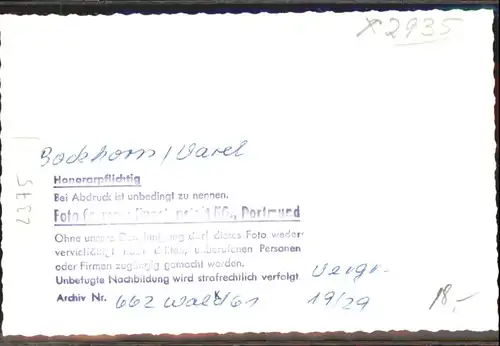 x 2935
Bockhorn/Varel
2375
Honorarpflichtig
Bei Abdruck ist unbedingt zu nennen.
Foto KG., Dortmund
Ohne unsere darf dieses Foto weder
vervielfältigt noch dritten, unberufenen Personen
oder Firmen zugängig gemacht werden.
Unbefugte Nachbildung wird strafrechtlich verfolgt.
Vergr.
Archiv Nr. 662 Wald/61 19/29 18,-